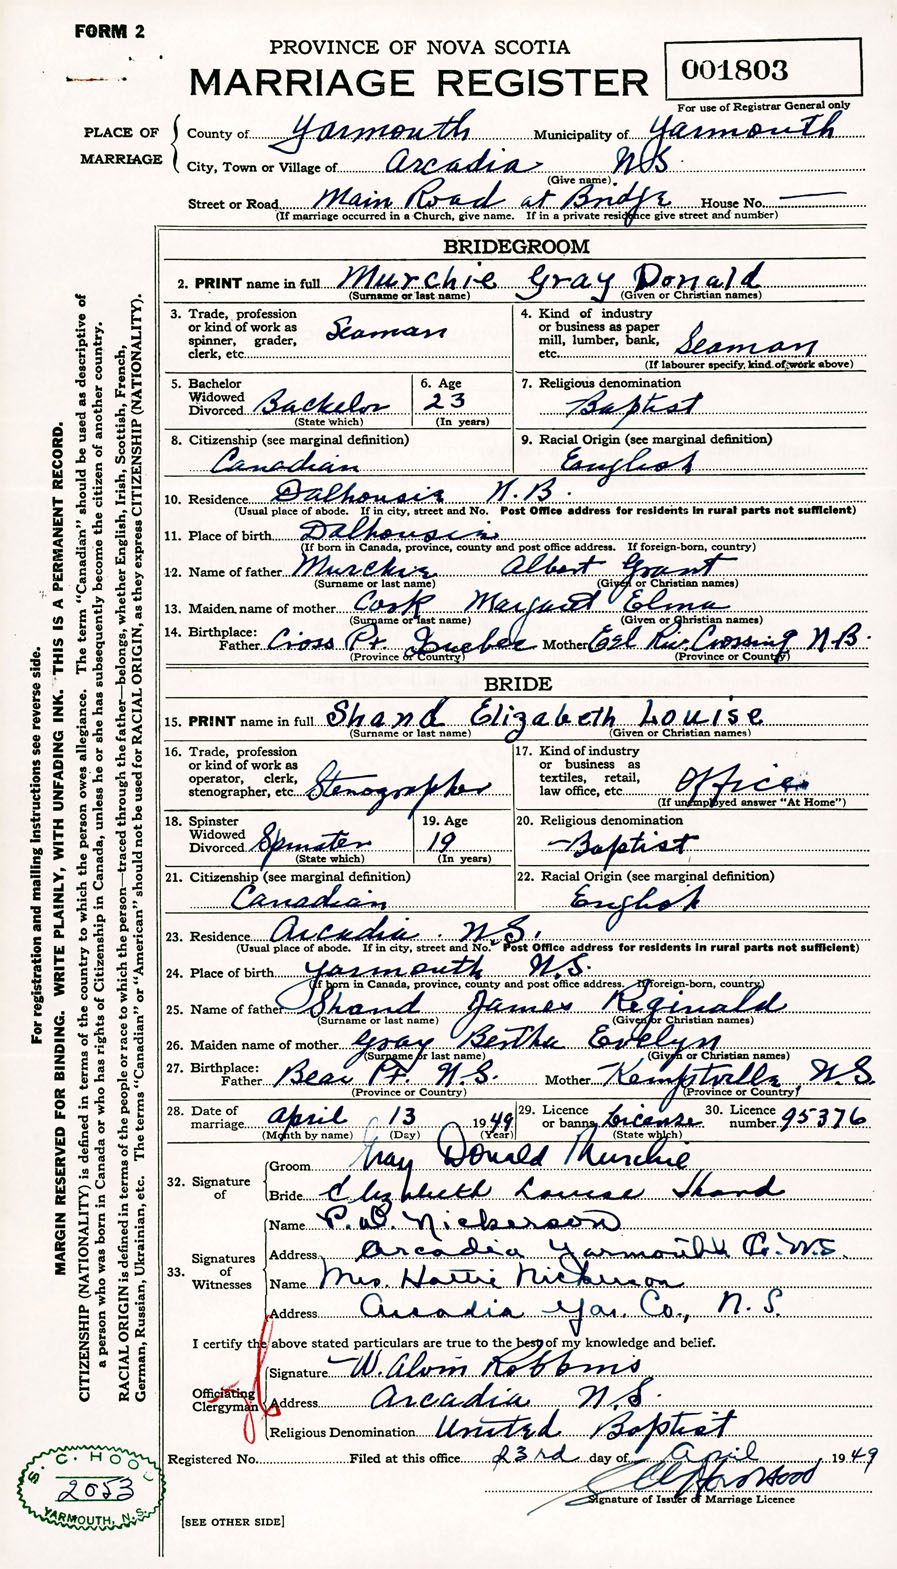 FORM 2
PROVINCE OF NOVA SCOTIA
MARRIAGE REGISTER
001803
For use of Registrar General only
PLACE OF MARRIAGE
County of Yarmouth Municipality of Yarmouth
City, Town or Village of Arcadia N.S.
(Give name)
Street or Road Main Road at Bridge House No. —
(If marriage occurred in a Church, give name. If in a private residence give street and number)
BRIDEGROOM
2. PRINT name in full Murchie Gray Donald
(Surname or last name) (Given or Christian names)
3. Trade, profession or kind of work as spinner, grader, clerk, etc. Seaman
4. Kind of industry or business as paper mill, lumber, bank, etc. Seaman
(If labourer specify, kind of work above)
5. Bachelor Widowed Divorced Bachelor
(State which)
6. Age 23
(In years)
7. Religious denomination Baptist
8. Citizenship (see marginal definition) Canadian
9. Racial Origin (see marginal definition) English
10. Residence Dalhousie N.B.
(Usual place of abode. If in city, street and No. Post Office address for residents in rural parts not sufficient)
11. Place of birth Dalhousie
(If born in Canada, province, county and post office address. If foreign-born, country)
12. Name of father Murchie Albert Grant
(Surname or last name) (Given or Christian names)
13. Maiden name of mother Cook Margaret Elma
(Surname or last name) (Given or Christian names)
14. Birthplace: Father Cross Pt. Quebec Mother Eel Riv. Crossing N.B.
(Province or Country) (Province or Country)
BRIDE
15. PRINT name in full Shand Elizabeth Louise
(Surname or last name) (Given or Christian names)
16. Trade, profession or kind of work as operator, clerk, stenographer, etc. Stenographer
17. Kind of industry or business as textiles, retail, law office, etc. Office
(If unemployed answer "At Home")
18. Spinster Widowed Divorced Spinster
(State which)
19. Age 19
(In years)
20. Religious denomination Baptist
21. Citizenship (see marginal definition) Canadian
22. Racial Origin (see marginal definition) English
23. Residence Arcadia. N.S.
(Usual place of abode. If in city, street and No. Post Office address for residents in rural parts not sufficient)
24. Place of birth Yarmouth N.S.
(If born in Canada, province, county and post office address. If foreign-born, country)
25. Name of father Shand James Reginald
(Surname or last name) (Given or Christian names)
26. Maiden name of mother Gray Bertha Evelyn
(Surname or last name) (Given or Christian names)
27. Birthplace: Father Bear Pt. N.S. Mother Kemptville, N.S.
(Province or Country) (Province or Country)
28. Date of marriage April 13 1949
(Month by name) (Day) (Year)
29. Licence or banns License
(State which)
30. Licence number 95376
32. Signature of
Groom Gray Donald Murchie
Bride Elizabeth Louise Shand
33. Signatures of Witnesses
Name P. W. Nickerson
Address Arcadia Yarmouth Co. N.S.
Name Mrs. Hattie Nickerson
Address Arcadia Yar. Co., N.S.
I certify the above stated particulars are true to the best of my knowledge and belief.
Officiating Clergyman
Signature W. Alvin Robbins
Address Arcadia N.S.
Religious Denomination United Baptist
Registered No. Filed at this office 23rd day of April 1949
Signature of Issuer of Marriage Licence
[SEE OTHER SIDE]
S. C. HOOD
2053
YARMOUTH, N.S.
For registration and mailing instructions see reverse side.
MARGIN RESERVED FOR BINDING. WRITE PLAINLY, WITH UNFADING INK. THIS IS A PERMANENT RECORD.
CITIZENSHIP (NATIONALITY) is defined in terms of the country to which the person owes allegiance. The term "Canadian" should be used as descriptive of
a person who was born in Canada or who has rights of Citizenship in Canada, unless he or she has subsequently become the citizen of another country.
RACIAL ORIGIN is defined in terms of the people or race to which the person—traced through the father—belongs, whether English, Irish, Scottish, French,
German, Russian, Ukrainian, etc. The terms "Canadian" or "American" should not be used for RACIAL ORIGIN, as they express CITIZENSHIP (NATIONALITY).